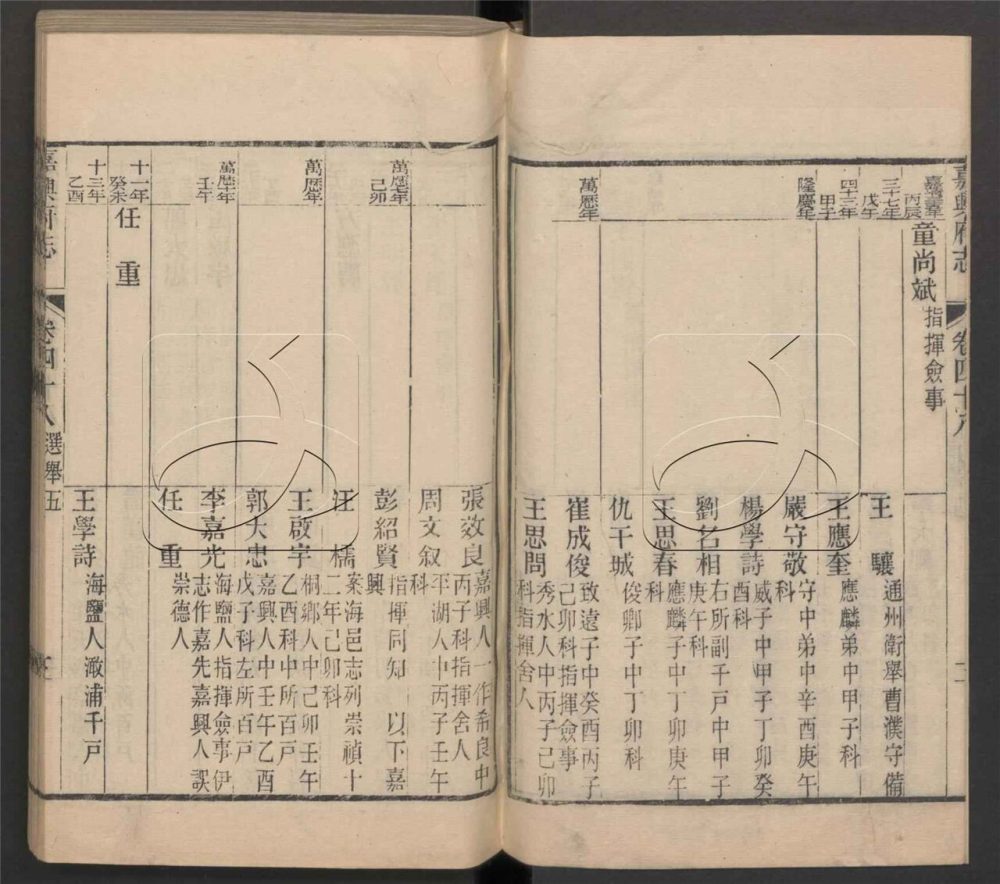 嘉興府志
卷四十八
二
丙辰
童尚斌 指揮僉事
三十七年戊午
四十三年甲子
隆慶年
萬歷年
王驥 通州衛舉曹濮守備
王應奎 應麟弟中甲子科
嚴守敬 守中弟中辛酉庚午科
楊學詩 威子中甲子丁卯癸酉科
劉名相 右所副千戶中甲子庚午科
王思春 應麟子中丁卯庚午科
仇干城 俊卿子中丁卯科
崔成俊 致遠子中癸酉丙子己卯科指揮僉事
王思問 秀水人中丙子己卯科指揮舍人
萬歷七年己卯
萬歷年
萬歷十年壬午
十一年癸未
任重
十三年乙酉
張效良 嘉興人一作希良中丙子科指揮舍人
周文叙 平湖人中丙子壬午科
彭紹賢 指揮同知 以下嘉興
汪檽 案海邑志列崇禎十二年己卯科
王啟宇 桐鄉人中己卯壬午乙酉科中所百戶
郭大忠 嘉興人中壬午乙酉戊子科左所百戶
李嘉光 海鹽人指揮僉事伊志作嘉先嘉興人誤
任重 崇德人
王學詩 海鹽人澉浦千戶
嘉興府志
卷四十八
選舉五